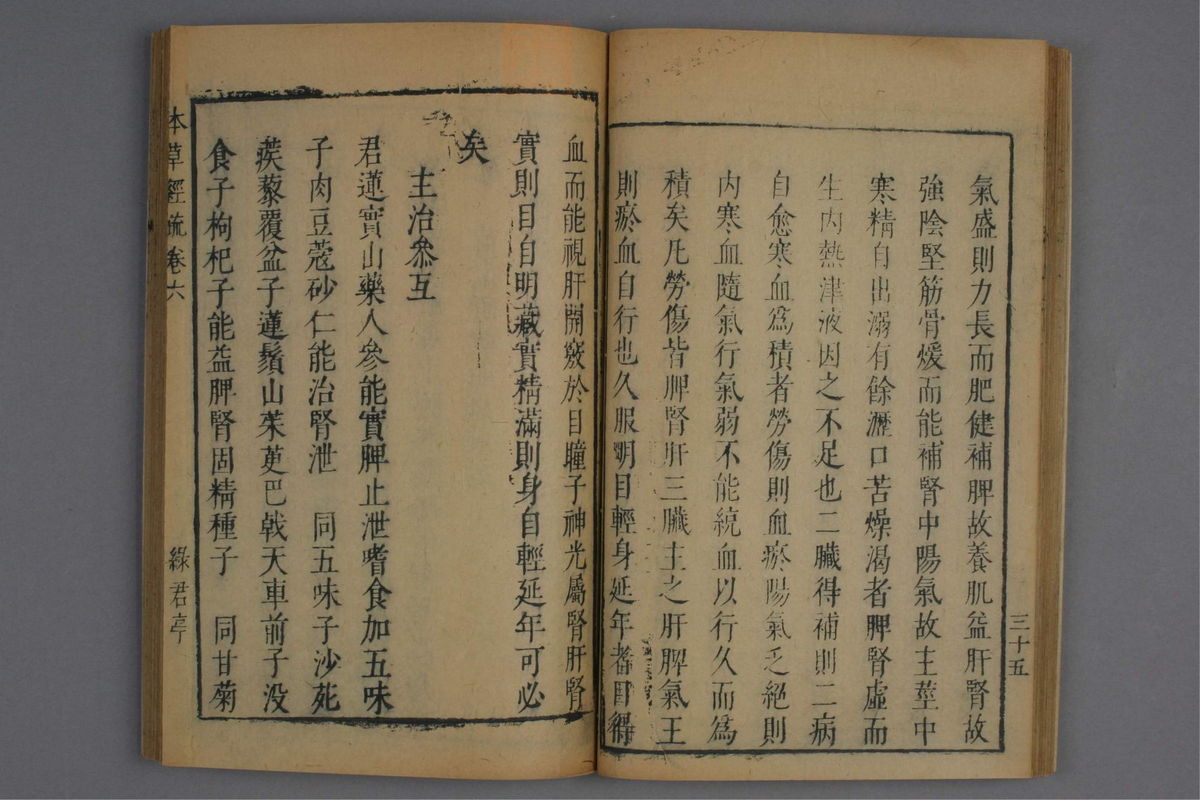 三十五
氣盛則力長而肥健補脾故養肌益肝腎故
強陰堅筋骨煖而能補腎中陽氣故主莖中
寒精自出溺有餘瀝口苦燥渴者脾腎虛而
生內熱津液因之不足也二臟得補則二病
自愈寒血為積者勞傷則血瘀陽氣乏絕則
內寒血隨氣行氣弱不能統血以行久而為
積矣凡勞傷皆脾腎肝三臟主之肝脾氣王
則瘀血自行也久服明目輕身延年者目得
血而能視肝開竅於目瞳子神光屬腎肝腎
實則目自明藏實精滿則身自輕延年可必
矣
主治參互
君蓮實山藥人參能實脾止泄嗜食加五味
子肉豆蔻砂仁能治腎泄 同五味子沙苑
蒺藜覆盆子蓮鬚山茱萸巴戟天車前子沒
食子枸杞子能益脾腎固精種子 同甘菊
本草經疏卷六 綠君亭